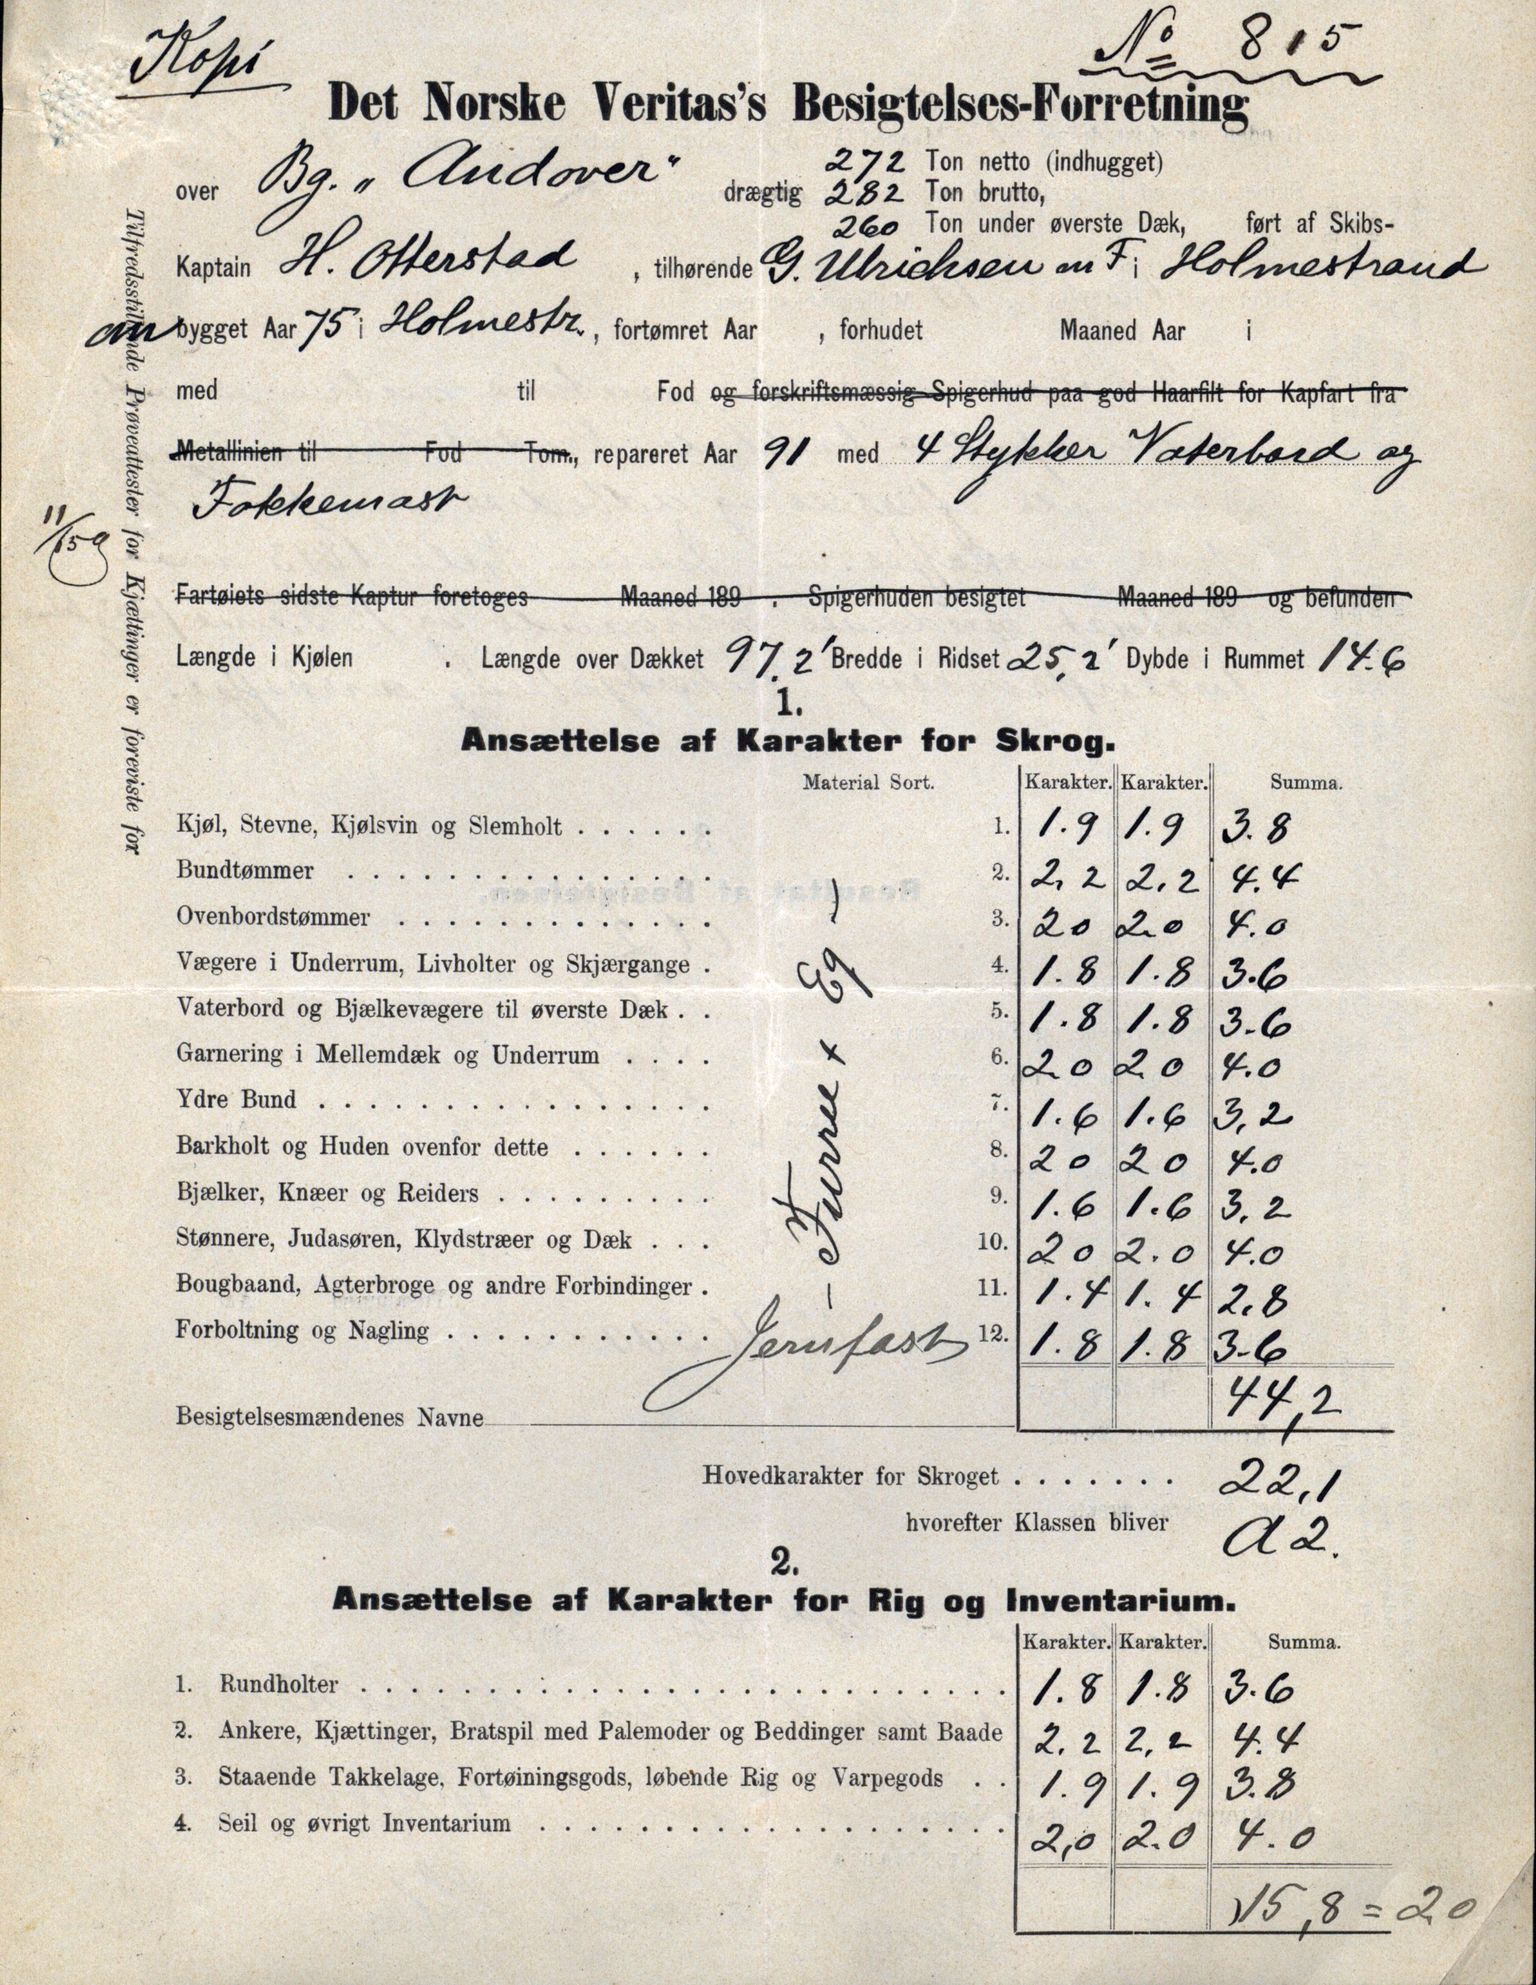 Kopi
No 815
Det Norske Veritas's Besigtelses-Forretning
over Bg. „Andover“ drægtig 272 Ton netto (indhugget)
282 Ton brutto,
260 Ton under øverste Dæk, ført af Skibs-
Kaptain H. Otterstad, tilhørende G. Ulrichsen m F i Holmestrand
bygget Aar 75 i Holmestr., fortømret Aar , forhudet Maaned Aar i
med til Fod og forskriftsmæssig Spigerhud paa god Haarfilt for Kapfart fra
Metallinien til Fod Tom., repareret Aar 91 med 4 Stykker Vaterbord og
Fokkemast
11/159
Fartøiets sidste Kaptur foretoges Maaned 189 . Spigerhuden besigtet Maaned 189 og befunden
Længde i Kjølen . Længde over Dækket 97.2' Bredde i Ridset 25,2' Dybde i Rummet 14.6
Tilfredsstillende Prøveattester for Kjættinger er foreviste for
1.
Ansættelse af Karakter for Skrog.
Material Sort. Karakter. Karakter. Summa.
Kjøl, Stevne, Kjølsvin og Slemholt . . . . . . 1. 1.9 1.9 3.8
Bundtømmer . . . . . . . . . . . . . . . 2. 2,2 2,2 4.4
Ovenbordstømmer . . . . . . . . . . . . . 3. 20 2.0 4.0
Vægere i Underrum, Livholter og Skjærgange . 4. 1.8 1.8 3.6
Vaterbord og Bjælkevægere til øverste Dæk . . 5. 1.8 1.8 3.6
Garnering i Mellemdæk og Underrum . . . . 6. 2.0 2.0 4.0
Ydre Bund . . . . . . . . . . . . . . . . 7. 1.6 1.6 3,2
Barkholt og Huden ovenfor dette . . . . . . 8. 20 20 4.0
Bjælker, Knæer og Reiders . . . . . . . . . 9. 1.6 1.6 3,2
Stønnere, Judasøren, Klydstræer og Dæk . . . 10. 20 2.0 4.0
Bougbaand, Agterbroge og andre Forbindinger . 11. 1.4 1.4 2,8
Forboltning og Nagling . . . . . . . . . . . Jernfast 12. 1.8 1.8 3.6
– Furru + Eg –
44,2
Besigtelsesmændenes Navne
Hovedkarakter for Skroget . . . . . . . 22,1
hvorefter Klassen bliver A 2.
2.
Ansættelse af Karakter for Rig og Inventarium.
Karakter. Karakter. Summa.
1. Rundholter . . . . . . . . . . . . . . . . . . . . . . . . . 1.8 1.8 3.6
2. Ankere, Kjættinger, Bratspil med Palemoder og Beddinger samt Baade 2,2 2,2 4.4
3. Staaende Takkelage, Fortøiningsgods, løbende Rig og Varpegods . . 1.9 1.9 3.8
4. Seil og øvrigt Inventarium . . . . . . . . . . . . . . . . . . 2,0 2.0 4.0
15,8 = 2.0